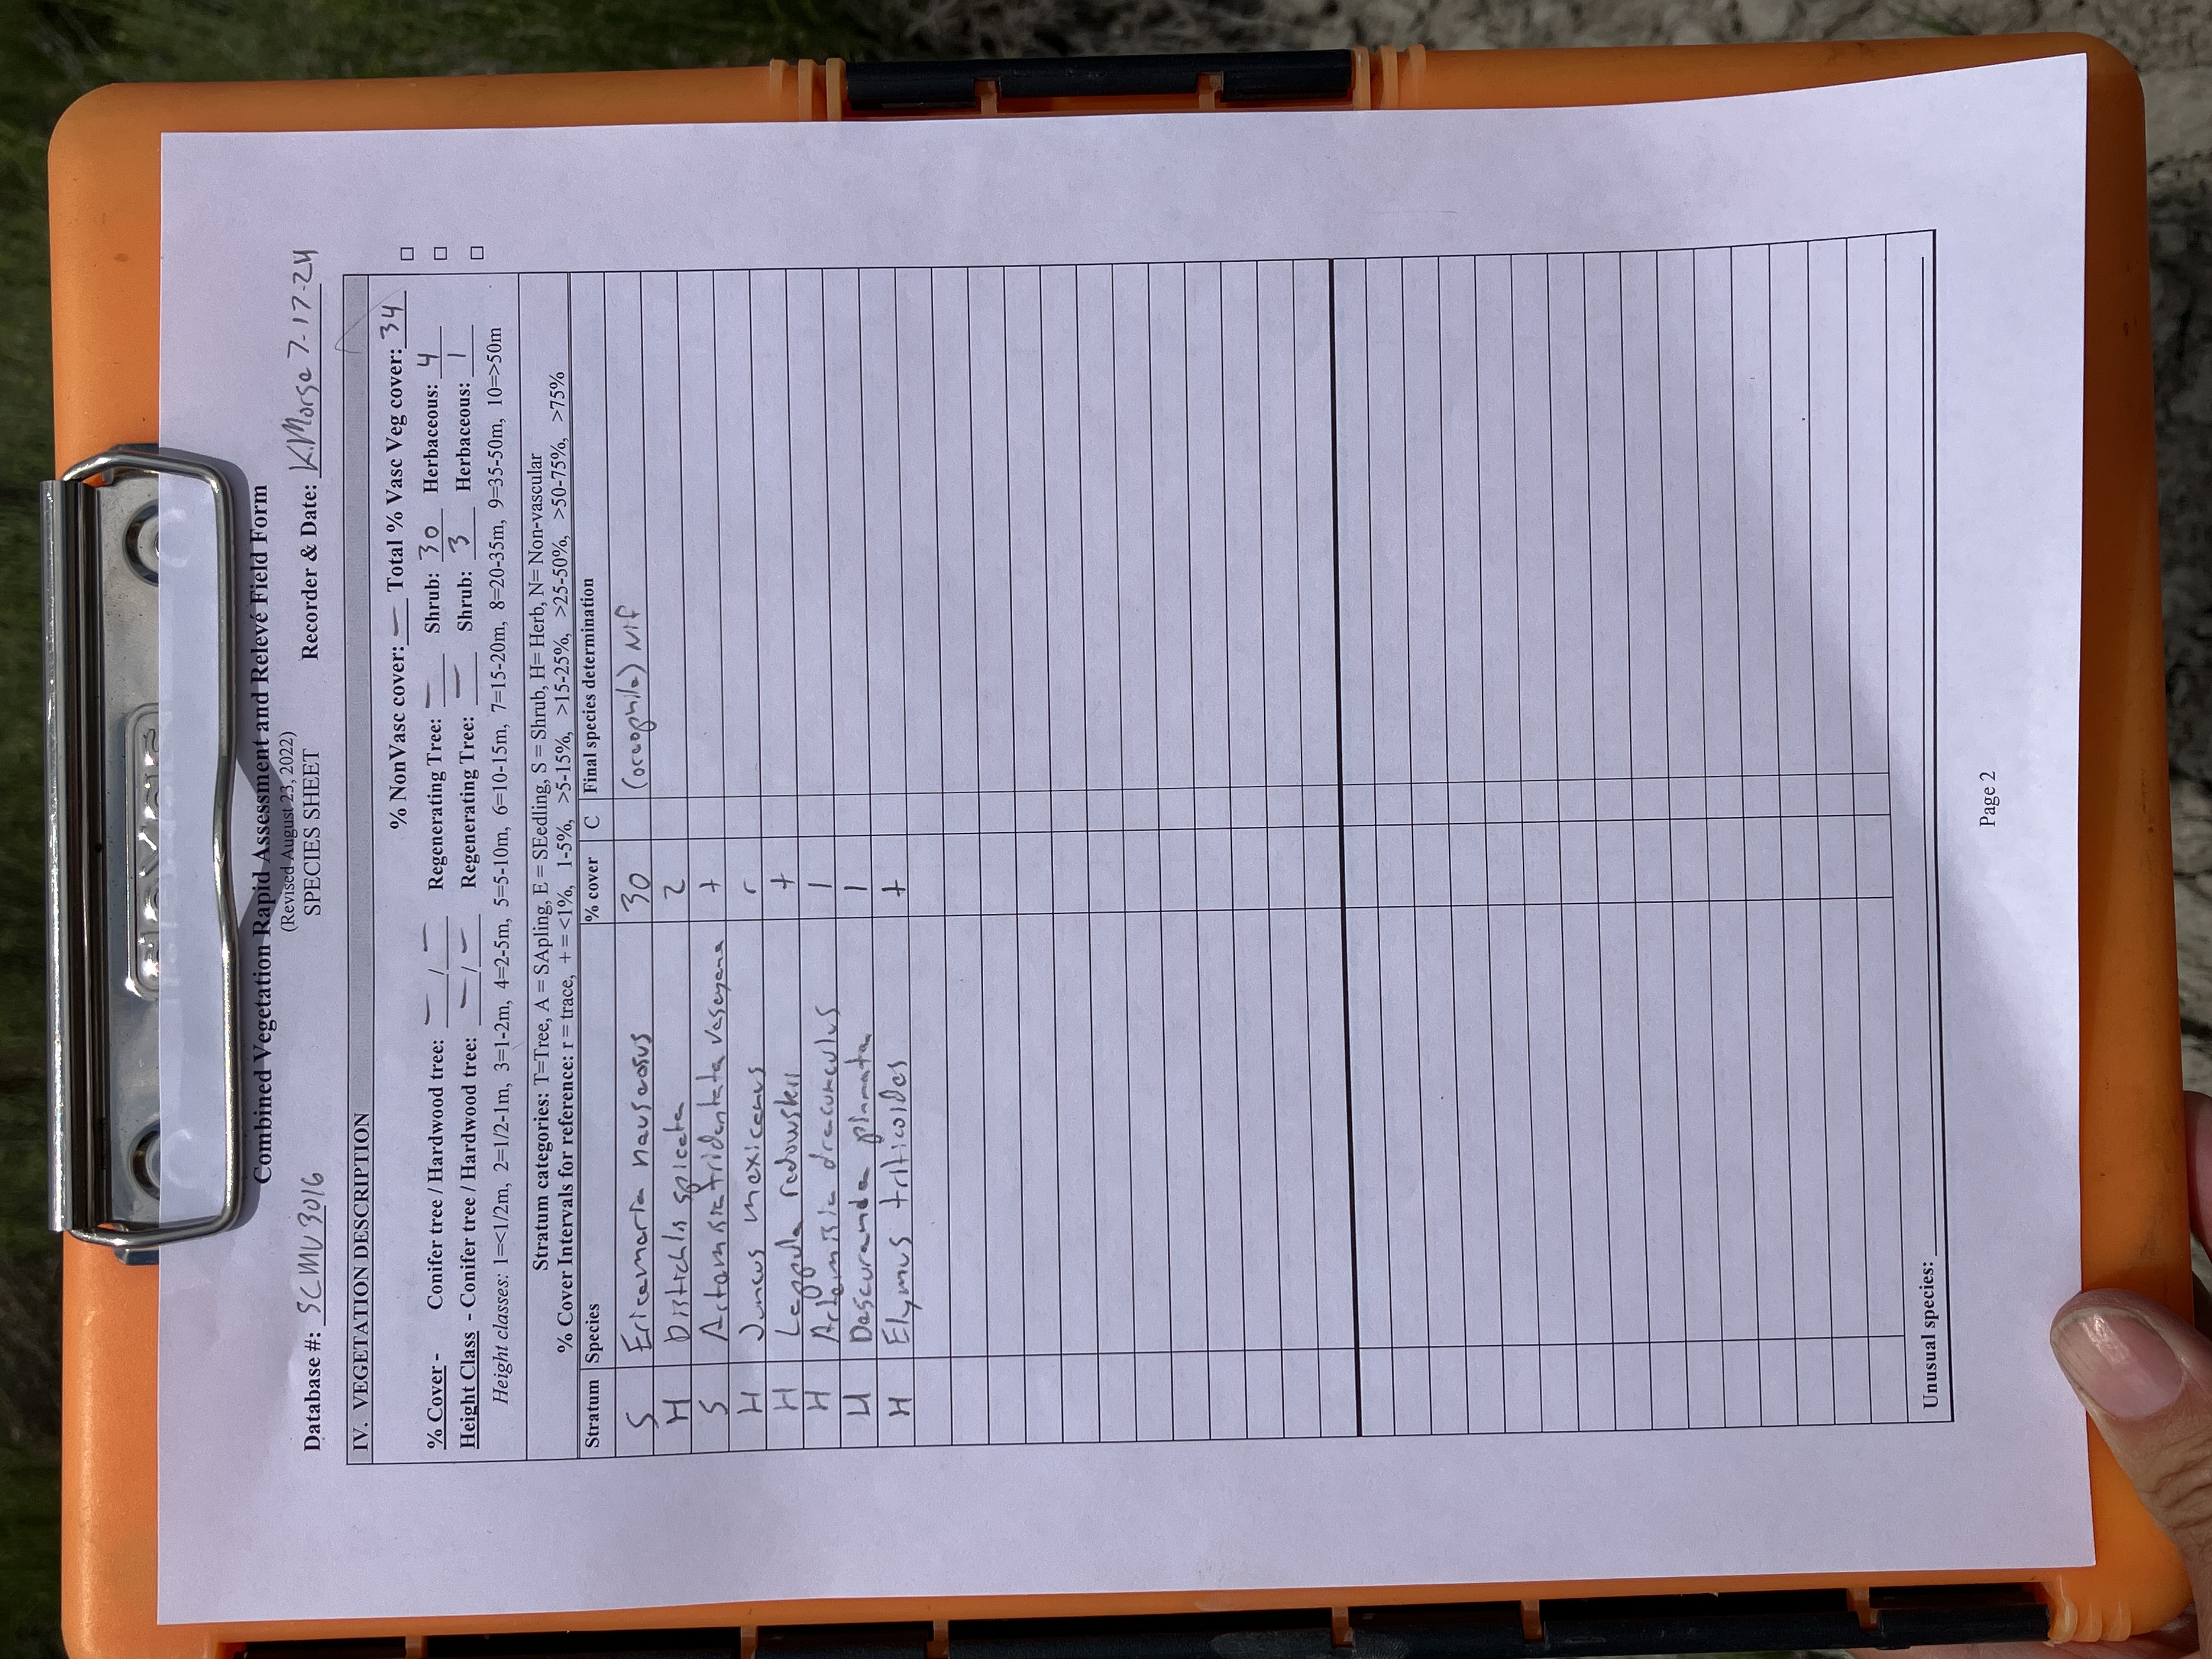 Combined Vegetation Rapid Assessment and Relevé Field Form
(Revised August 23, 2022)
SPECIES SHEET
Database #: SCMU3016 Recorder & Date: K.Morse 7-17-24
IV. VEGETATION DESCRIPTION
% NonVasc cover: — Total % Vasc Veg cover: 34 □
% Cover - Conifer tree / Hardwood tree: — / — Regenerating Tree: — Shrub: 30 Herbaceous: 4 □
Height Class - Conifer tree / Hardwood tree: — / — Regenerating Tree: — Shrub: 3 Herbaceous: 1 □
Height classes: 1=<1/2m, 2=1/2-1m, 3=1-2m, 4=2-5m, 5=5-10m, 6=10-15m, 7=15-20m, 8=20-35m, 9=35-50m, 10=>50m
Stratum categories: T=Tree, A = SApling, E = SEedling, S = Shrub, H= Herb, N= Non-vascular
% Cover Intervals for reference: r = trace, + = <1%, 1-5%, >5-15%, >15-25%, >25-50%, >50-75%, >75%
Stratum Species % cover C Final species determination
S Ericameria nauseosus 30 (oreophila) NIF
H Distichlis spicata 2
S Artemisia tridentata vaseyana +
H Juncus mexicanus r
H Lappula redowskii +
H Artemisia dracunculus 1
H Descurainia pinnata 1
H Elymus triticoides +
Unusual species:
Page 2